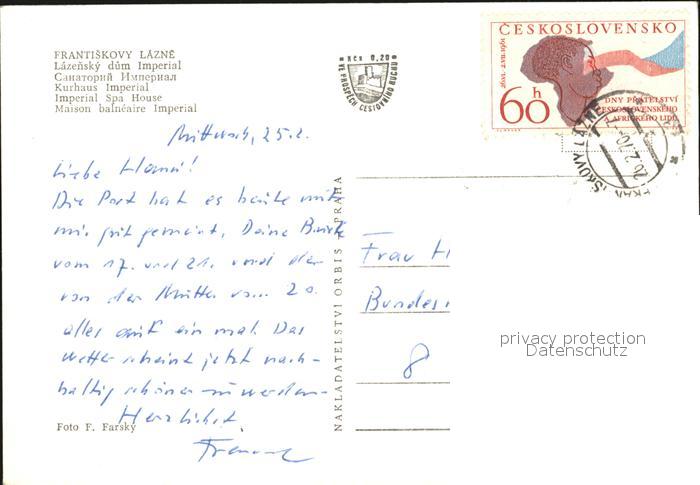 FRANTIŠKOVY LÁZNĚ
Lázeňský dům Imperial
Санаторий Империал
Kurhaus Imperial
Imperial Spa House
Maison balnéaire Imperial
Kčs 0,20
VE PROSPĚCH CESTOVNÍHO RUCHU
ČESKOSLOVENSKO
26.VI.-2.VII.1961
60h
DNY PŘÁTELSTVÍ
ČESKOSLOVENSKÉHO
A AFRICKÉHO LIDU
Mittwoch, 25.2.
Liebe
Die Post hat es heute mit
mir gut gemeint, Deine Briefe
vom 17. und 21. und der
von der Mutter vom 20.
alles auf ein mal. Das
Wetter scheint jetzt nach-
haltig schöner zu werden.
Herzlichst
Foto F. Farský
NAKLADATELSTVÍ ORBIS PRAHA
Frau H
Bundes
8
privacy protection
Datenschutz